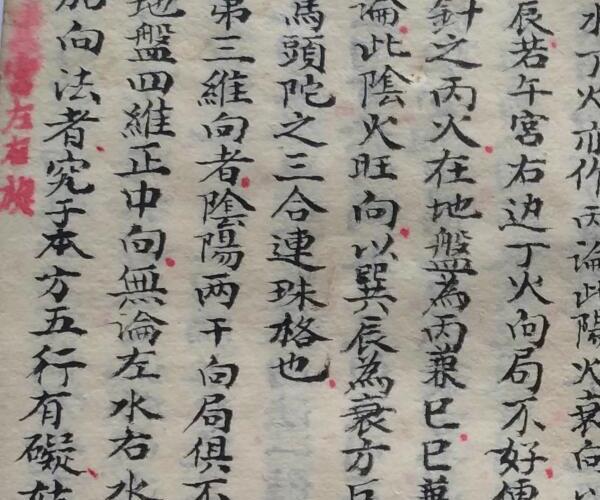 水丁火亦作丙論此陽火衰向以
辰若午宮右边丁火向局不好便
針之丙火在地盤為丙兼巳巳兼
論此陰火旺向以巽辰為衰方巨
馬頭陀之三合連珠格也
第三維向者陰陽两干向局俱不
地盤四維正中向無論左水右水
向法者究于本方五行有礙
宮左右旋